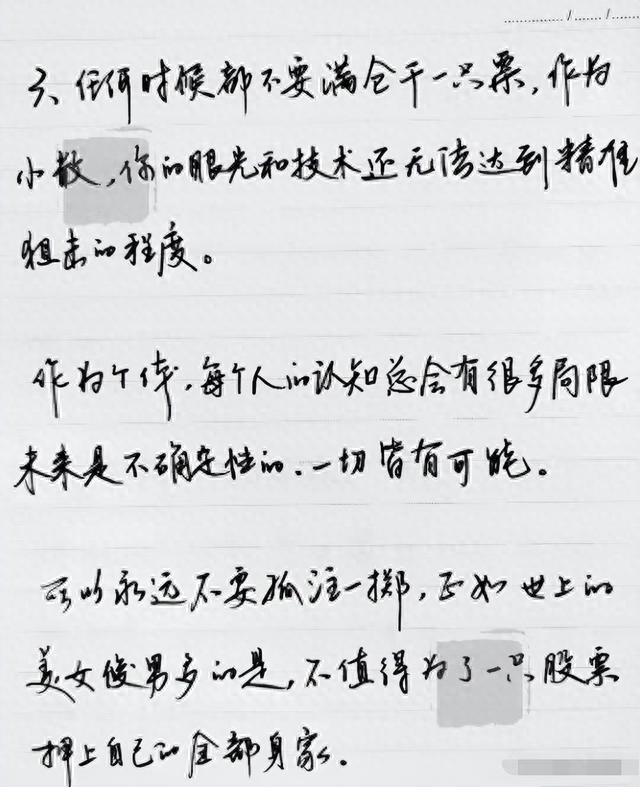 三、任何时候都不要满仓干一只票，作为
小散，你的眼光和技术还无法达到精准
狙击的程度。
作为个体，每个人的认知总会有很多局限
未来是不确定性的、一切皆有可能。
所以永远不要孤注一掷，正如世上的
美女俊男多的是，不值得为了一只股票
押上自己的全部身家。